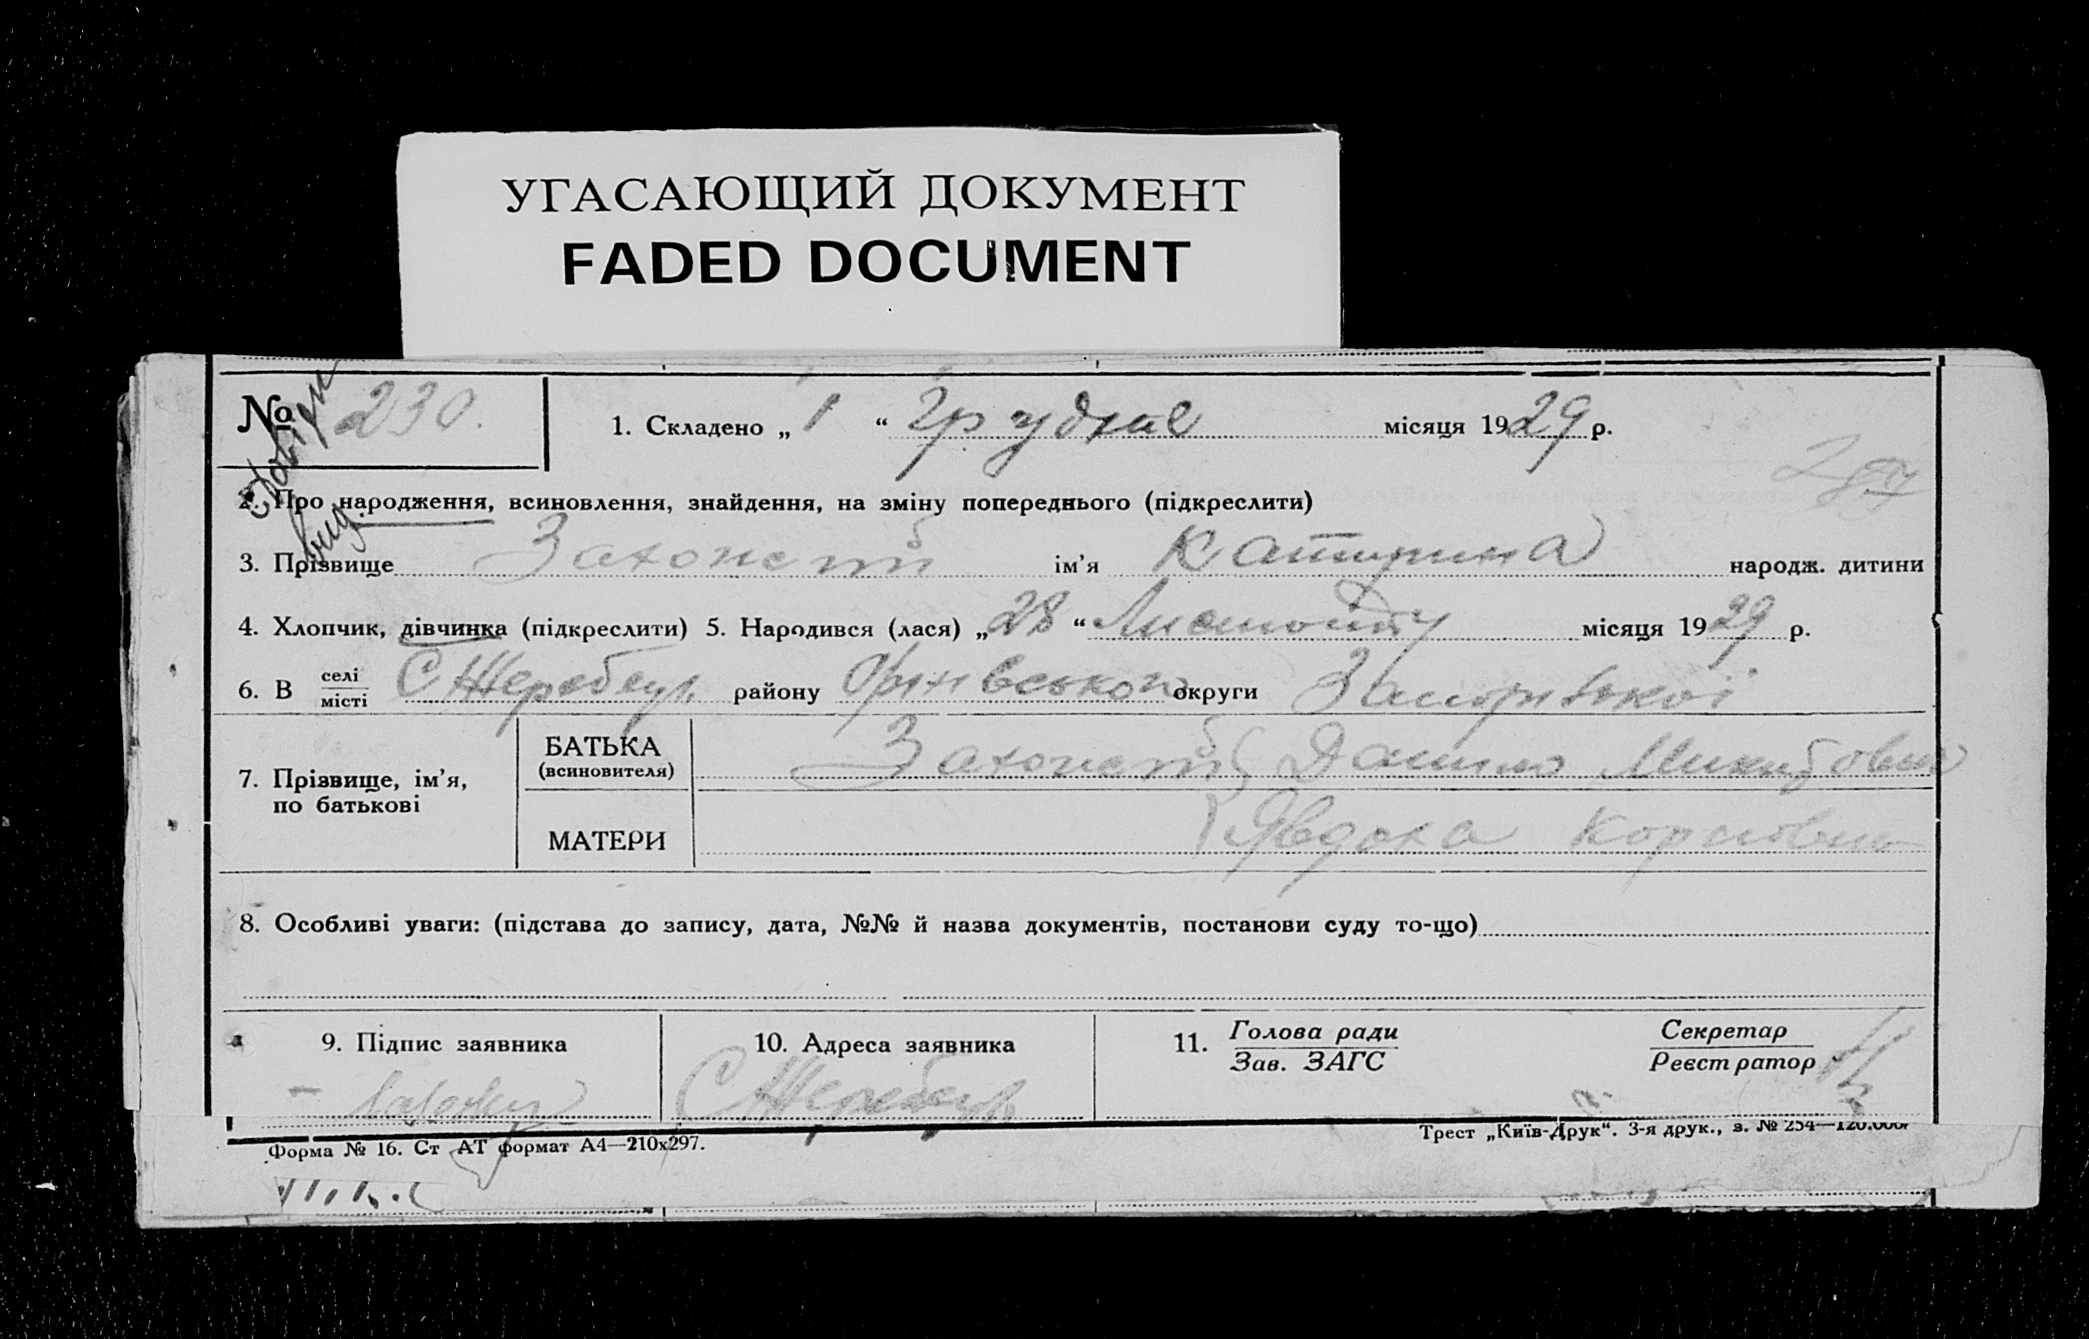 УГАСАЮЩИЙ ДОКУМЕНТ
FADED DOCUMENT
№ 230.
1. Складено „ 1 “ Грудня місяця 1929 р.
2. Про народження, всиновлення, знайдення, на зміну попереднього (підкреслити)
3. Прізвище ім’я Катерина народж. дитини
4. Хлопчик, дівчинка (підкреслити) 5. Народився (лася) „ 28 “ Листопаду місяця 1929 р.
6. В селі
місті
С Жеребець району Оріхівського округи Запорізької
7. Прізвище, ім’я,
по батькові
БАТЬКА
(всиновителя)
Данило Микитович
МАТЕРИ
Явдоха
8. Особливі уваги: (підстава до запису, дата, №№ й назва документів, постанови суду то-що)
9. Підпис заявника
10. Адреса заявника
С Жеребець
11. Голова ради
Зав. ЗАГС
Секретар
Реєстратор
Форма № 16. Ст АТ формат А4—210х297.
Трест „Київ-Друк“. 3-я друк., з. № 254—120.000